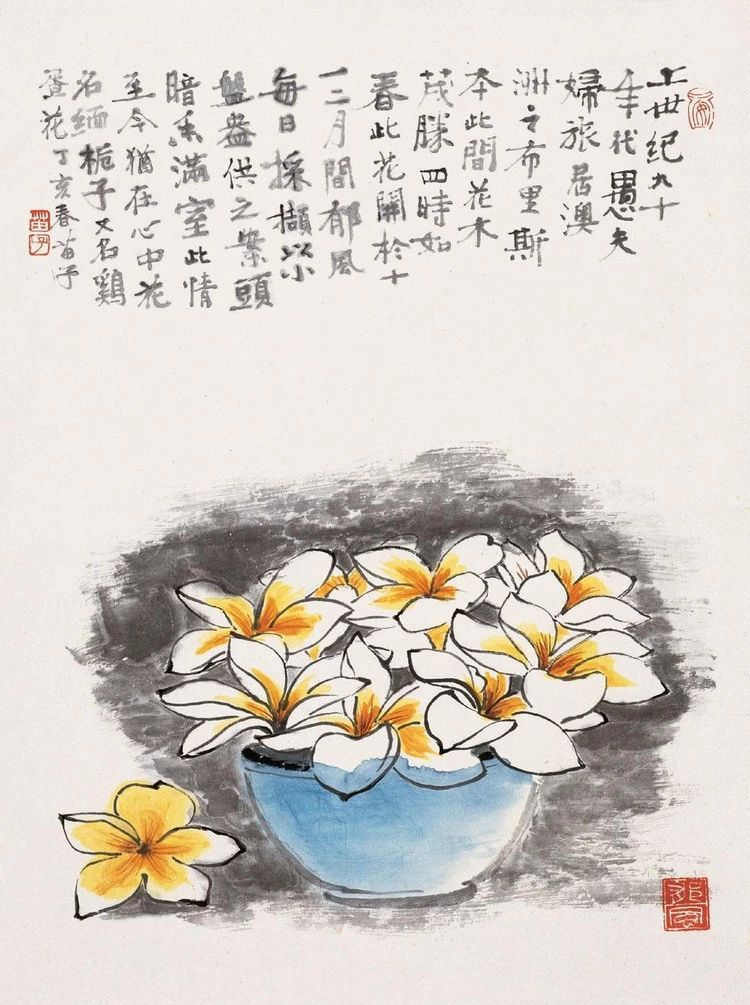 上世紀九十
年代愚夫
婦旅居澳
洲之布里斯
本此間花木
茂勝四時如
春此花開於十
一二月間郁風
每日採擷以小
盤盎供之案頭
暗香滿室此情
至今猶在心中花
名緬梔子又名鷄
蛋花丁亥春苗子
苗子
郁風